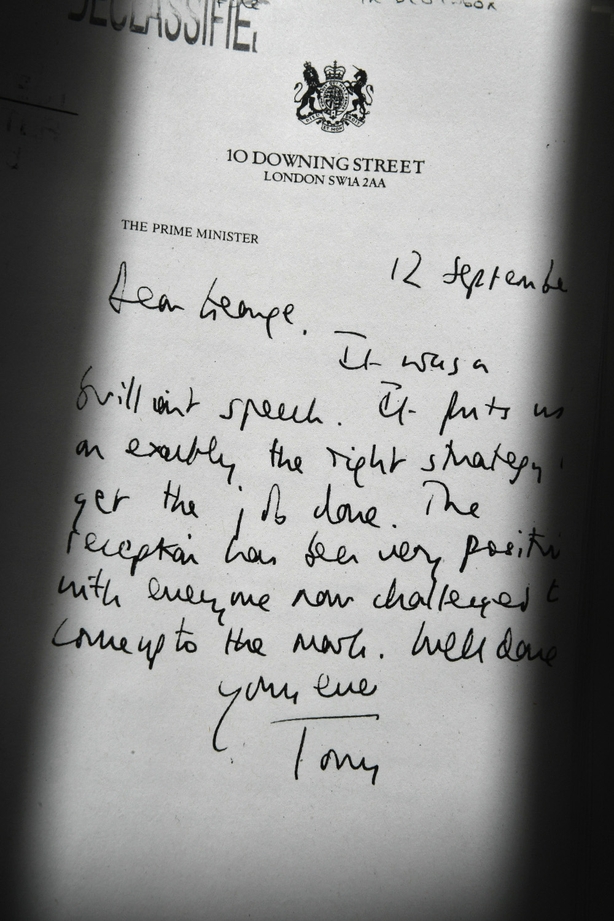 DECLASSIFIE
10 DOWNING STREET
LONDON SW1A 2AA
THE PRIME MINISTER
12 Septembe
Dear George.
It was a
brilliant speech. It puts us
on exactly the right strategy
get the job done. The
reception has been very positi
with everyone now challenged t
come up to the mark. Well done
yours ever
Tony